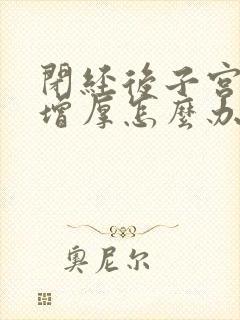 閉經後子宮
增厚怎麼办
奧尼尔